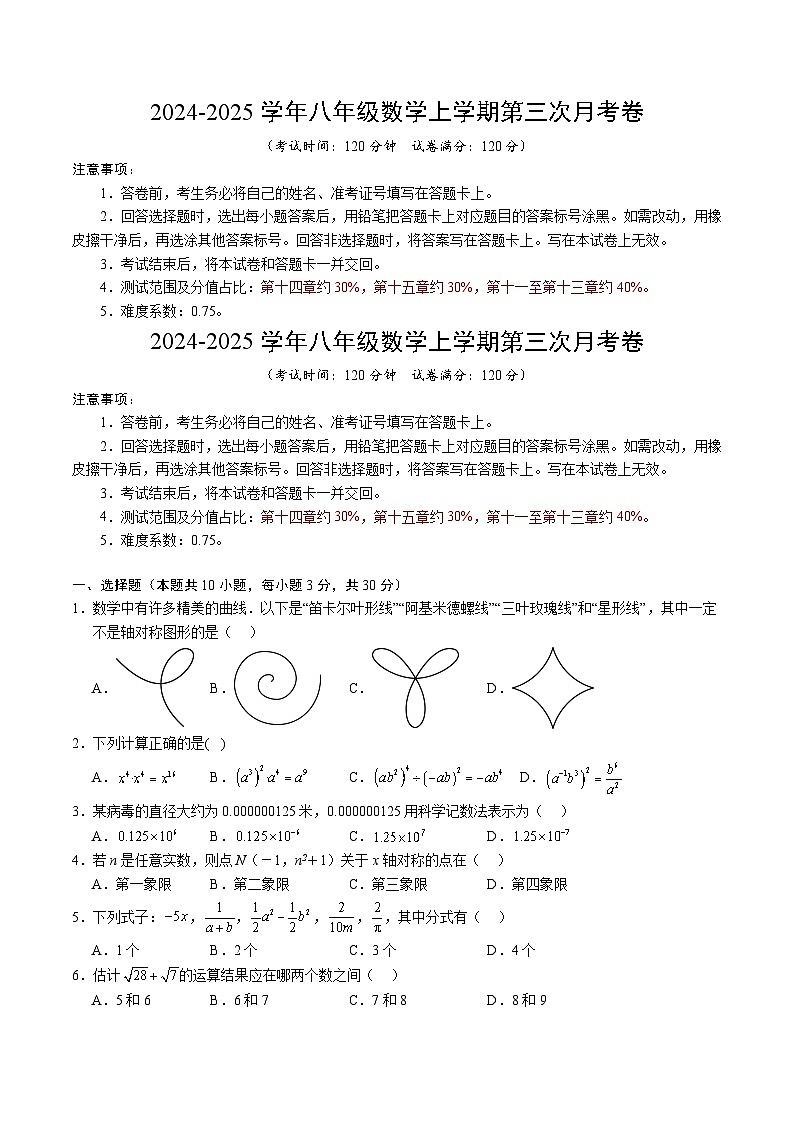 2024-2025 学年八年级数学上学期第三次月考卷
（考试时间：120 分钟 试卷满分：120 分）
注意事项：
1．答卷前，考生务必将自己的姓名、准考证号填写在答题卡上。
2．回答选择题时，选出每小题答案后，用铅笔把答题卡上对应题目的答案标号涂黑。如需改动，用橡
皮擦干净后，再选涂其他答案标号。回答非选择题时，将答案写在答题卡上。写在本试卷上无效。
3．考试结束后，将本试卷和答题卡一并交回。
4．测试范围及分值占比：第十四章约 30%，第十五章约 30%，第十一至第十三章约 40%。
5．难度系数：0.75。
2024-2025 学年八年级数学上学期第三次月考卷
（考试时间：120 分钟 试卷满分：120 分）
注意事项：
1．答卷前，考生务必将自己的姓名、准考证号填写在答题卡上。
2．回答选择题时，选出每小题答案后，用铅笔把答题卡上对应题目的答案标号涂黑。如需改动，用橡
皮擦干净后，再选涂其他答案标号。回答非选择题时，将答案写在答题卡上。写在本试卷上无效。
3．考试结束后，将本试卷和答题卡一并交回。
4．测试范围及分值占比：第十四章约 30%，第十五章约 30%，第十一至第十三章约 40%。
5．难度系数：0.75。
一、选择题（本题共 10 小题，每小题 3 分，共 30 分）
1．数学中有许多精美的曲线．以下是“笛卡尔叶形线”“阿基米德螺线”“三叶玫瑰线”和“星形线”，其中一定
不是轴对称图形的是（ ）
A． B． C． D．
2．下列计算正确的是( )
A．x⁴·x⁴=x¹⁶ B．(a³)²·a⁴=a⁹ C．(ab²)⁴÷(−ab)²=−ab⁴ D．(a⁻¹b³)²=b⁶/a²
3．某病毒的直径大约为 0.000000125 米，0.000000125 用科学记数法表示为（ ）
A．0.125×10⁶ B．0.125×10⁻⁶ C．1.25×10⁷ D．1.25×10⁻⁷
4．若 n 是任意实数，则点 N（－1，n²＋1）关于 x 轴对称的点在（ ）
A．第一象限 B．第二象限 C．第三象限 D．第四象限
5．下列式子：−5x，1/(a+b)，1/2a²−1/2b²，2/10m，2/π，其中分式有（ ）
A．1 个 B．2 个 C．3 个 D．4 个
6．估计 √28+√7 的运算结果应在哪两个数之间（ ）
A．5 和 6 B．6 和 7 C．7 和 8 D．8 和 9